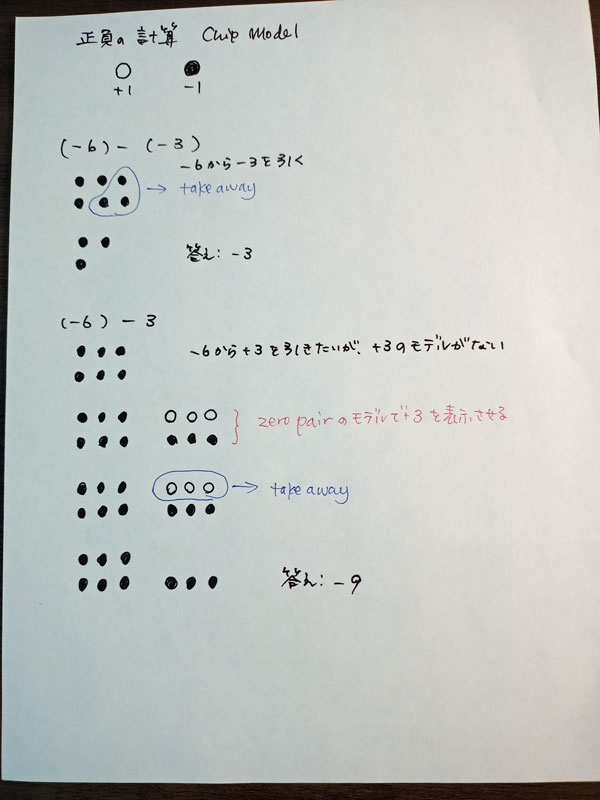 正負の計算 Chip Model
+1 -1
(-6) - (-3)
-6から-3を引く
take away
答え: -3
(-6) - 3
-6から+3を引きたいが、+3のモデルがない
zero pairのモデルで+3を表示させる
take away
答え: -9